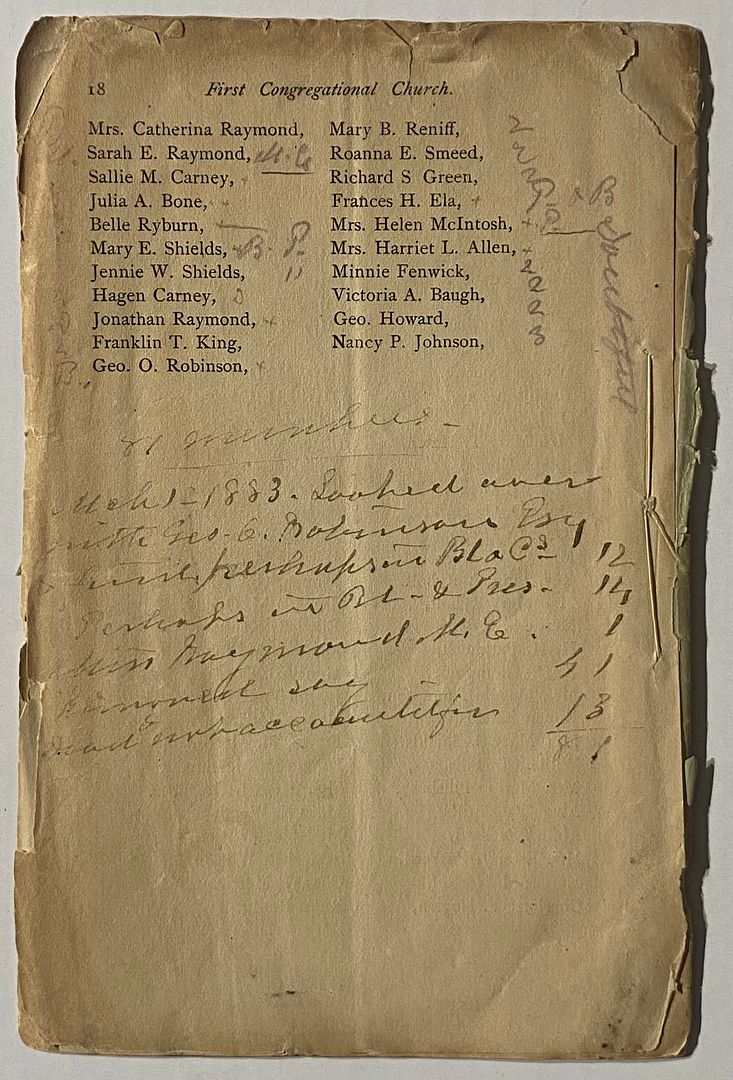 18 First Congregational Church.
Mrs. Catherina Raymond,
Sarah E. Raymond, M. E
Sallie M. Carney,
Julia A. Bone,
Belle Ryburn,
Mary E. Shields, B. P.
Jennie W. Shields, "
Hagen Carney, D
Jonathan Raymond,
Franklin T. King,
Geo. O. Robinson,
Mary B. Reniff,
Roanna E. Smeed,
Richard S Green,
Frances H. Ela,
Mrs. Helen McIntosh,
Mrs. Harriet L. Allen,
Minnie Fenwick,
Victoria A. Baugh,
Geo. Howard,
Nancy P. Johnson,
81 members
Mch 1st 1883. Looked over
with Geo. O. Robinson Esq
perhaps in Bl 12
Perhaps in Bl. & Pres. 14
Raymond M. E. 1
Removed say 41
Dead & not accounted for 13
81